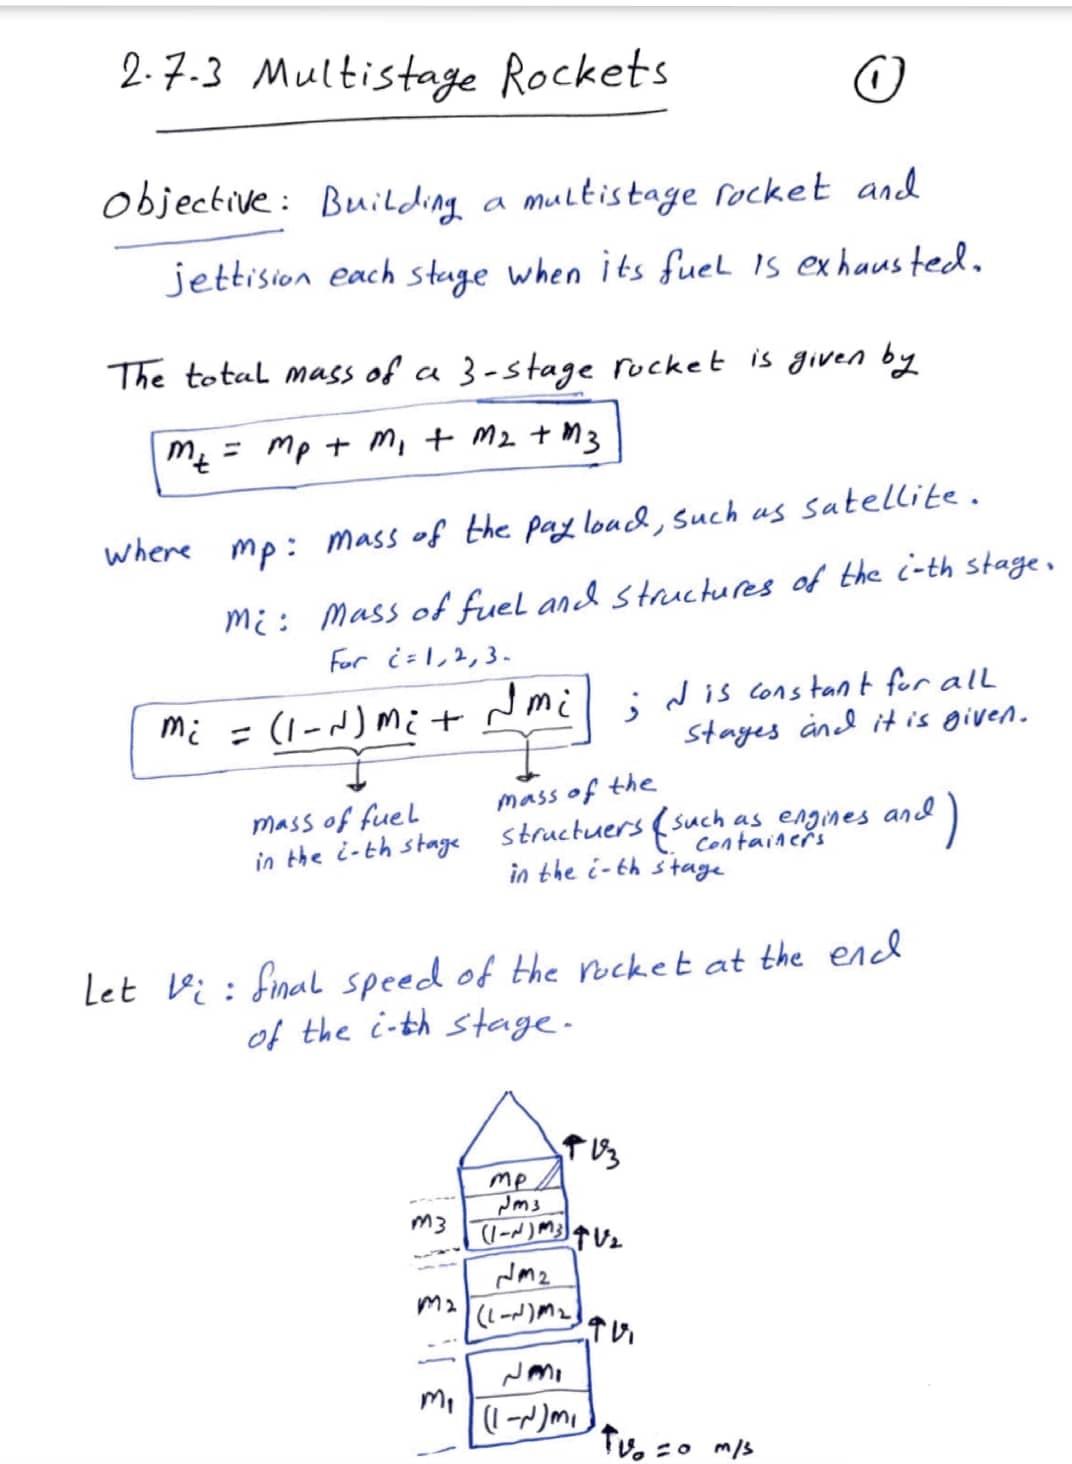 2.7.3 Multistage Rockets
①
Objective: Building a multistage rocket and
jettision each stage when its fuel is exhausted.
The total mass of a 3-stage rocket is given by
m_t = m_p + m_1 + m_2 + m_3
where m_p: mass of the payload, such as satellite.
m_i: Mass of fuel and structures of the i-th stage.
For i=1,2,3.
m_i = (1-N) m_i + N m_i ; N is constant for all
stages and it is given.
mass of fuel
in the i-th stage
mass of the
structuers (such as engines and
containers)
in the i-th stage
Let v_i : final speed of the rocket at the end
of the i-th stage.
↑v_3
m_p
N m_3
m_3 (1-N)m_3 ↑v_2
N m_2
m_2 (1-N)m_2 ↑v_1
N m_1
m_1 (1-N)m_1
↑v_0 = 0 m/s